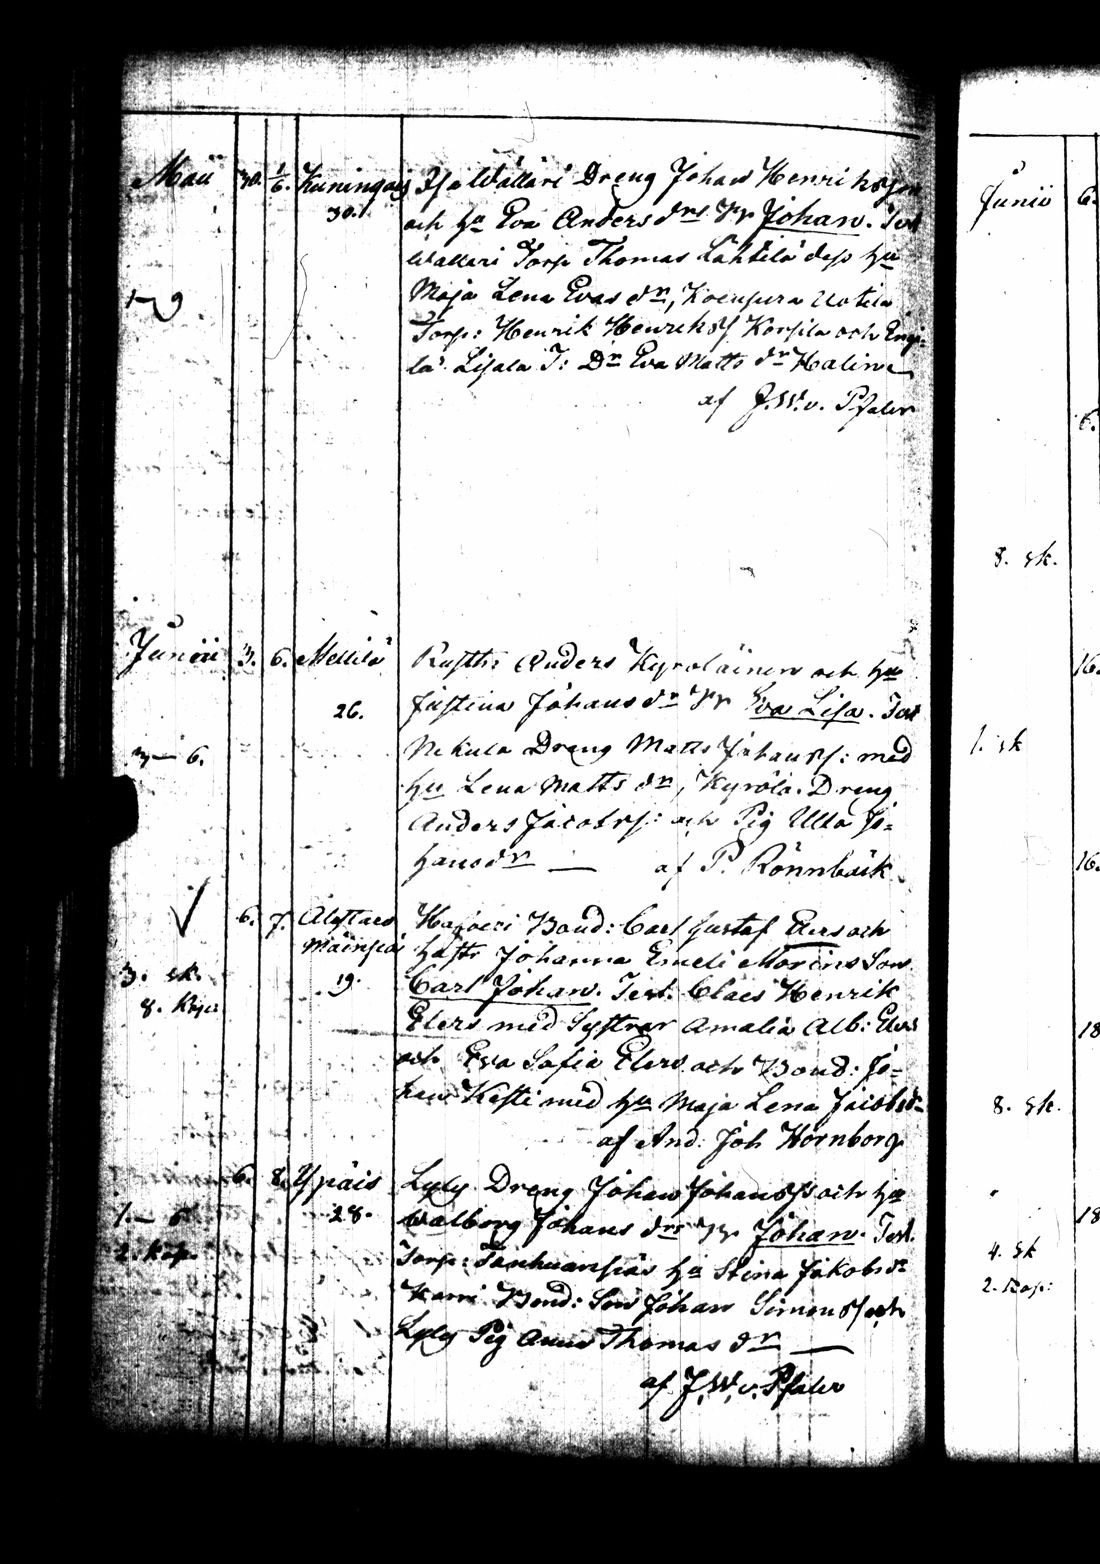 Maii 30. 1/6. Kuningais Isa Wälläri Dreng Johan Henriksson
30. och hu Eva Anders drs Johan. Test
Wallari Torp Thomas Lähtilä dess hu
1— 9 Maja Lena Evas dr, Koenpera Uotila
Torp: Henrik Henriks Korpila och
Lisala T: Dr Eva Matts dr
af J.W.v. Pfaler
Junii 3. 6. Mellilä Rusth: Anders Kyroläinen och hu
26. Justina Johans dr Eva Lisa. Test
Nekula Dreng Matts Johanss: med
3— 6. hu Lena Matts dr, Kyrölä. Dreng
Anders Jacobss: och Pig Ulla Jo-
hans dr — af P. Rönnbäck
6. 7. Alastaro Bond: Carl Gustaf Elers och
hustr Johanna Emeli Morins Son
3. sk. 19. Carl Johan. Test: Claes Henrik
8. Kop Elers med Systrar Amalia Alb: Elers
och Eva Sofia Elers och Bond: Jo-
han Kesti med hu Maja Lena Jacobs dr
af And: Joh Hornborg
6. 8. Ypäis Lyly Dreng Johan Johanss och hu
1.— 28. Walborg Johans drs Johan. Test.
2. kop. Torp: Tanhuanpääs hu Stina Jakobs dr
Bond: Son Johan Simons och
Lyly Pig Anna Thomas dr —
af J.W.v. Pfaler
Junii 6.
6.
8. sk.
16.
1. sk
16.
18
8. sk.
18
4. sk
2. kop: